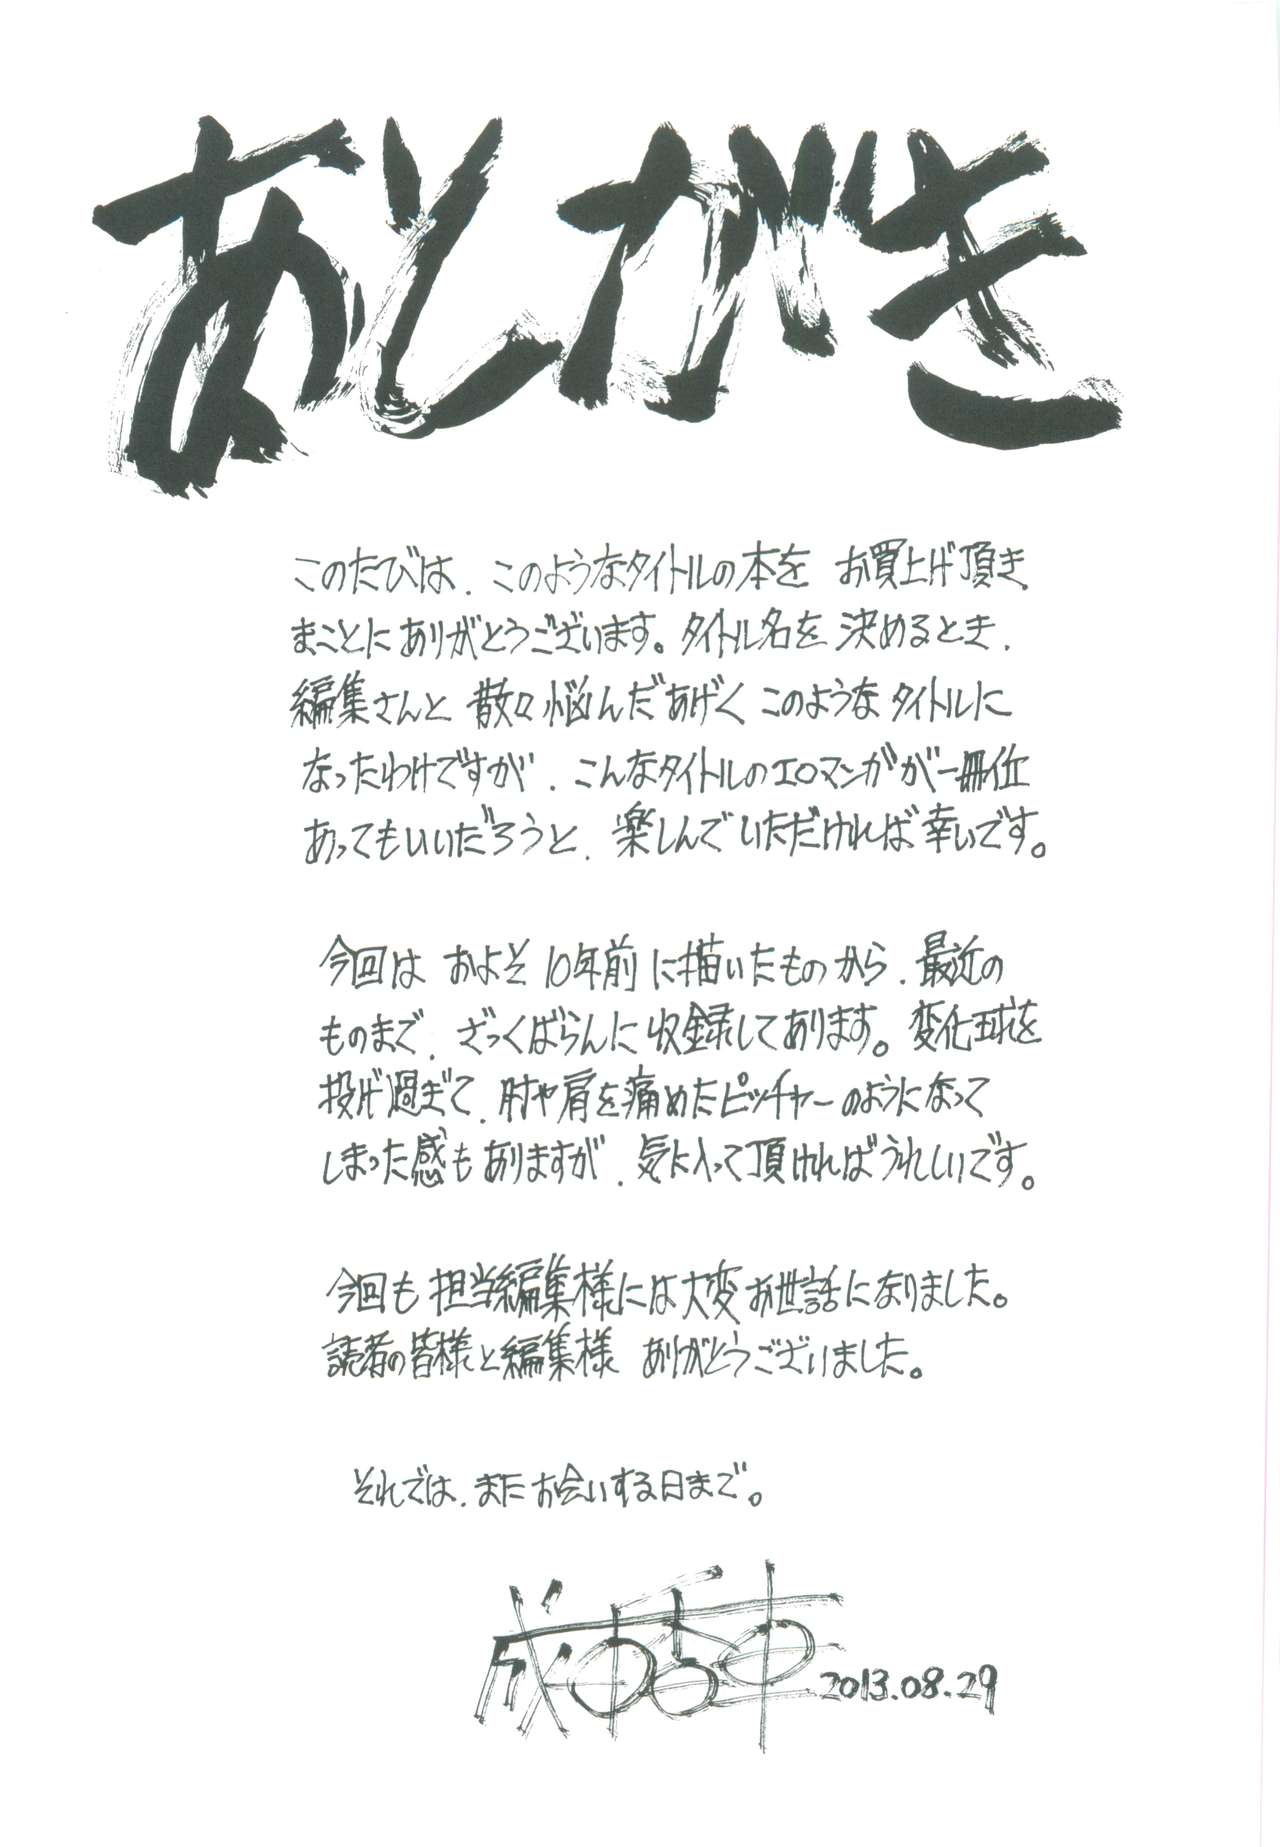 あとがき
このたびは、このようなタイトルの本を お買上げ頂き、
まことにありがとうございます。タイトル名を決めるとき、
編集さんと 散々悩んだあげく このようなタイトルに
なったわけですが、こんなタイトルのエロマンガが一冊位
あってもいいだろうと、楽しんでいただければ幸いです。
今回は およそ10年前に描いたものから、最近の
ものまで、ざっくばらんに収録してあります。変化球を
投げ過ぎて、肘や肩を痛めたピッチャーのようになって
しまった感もありますが、気に入って頂ければうれしいです。
今回も担当編集様には大変お世話になりました。
読者の皆様と編集様 ありがとうございました。
それでは、またお会いする日まで。
2013.08.29